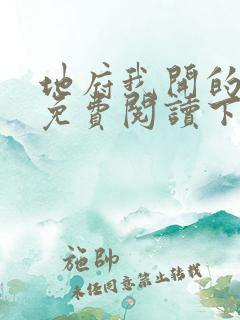 地府我開的
免費閱讀下
施帥
未经同意禁止转载